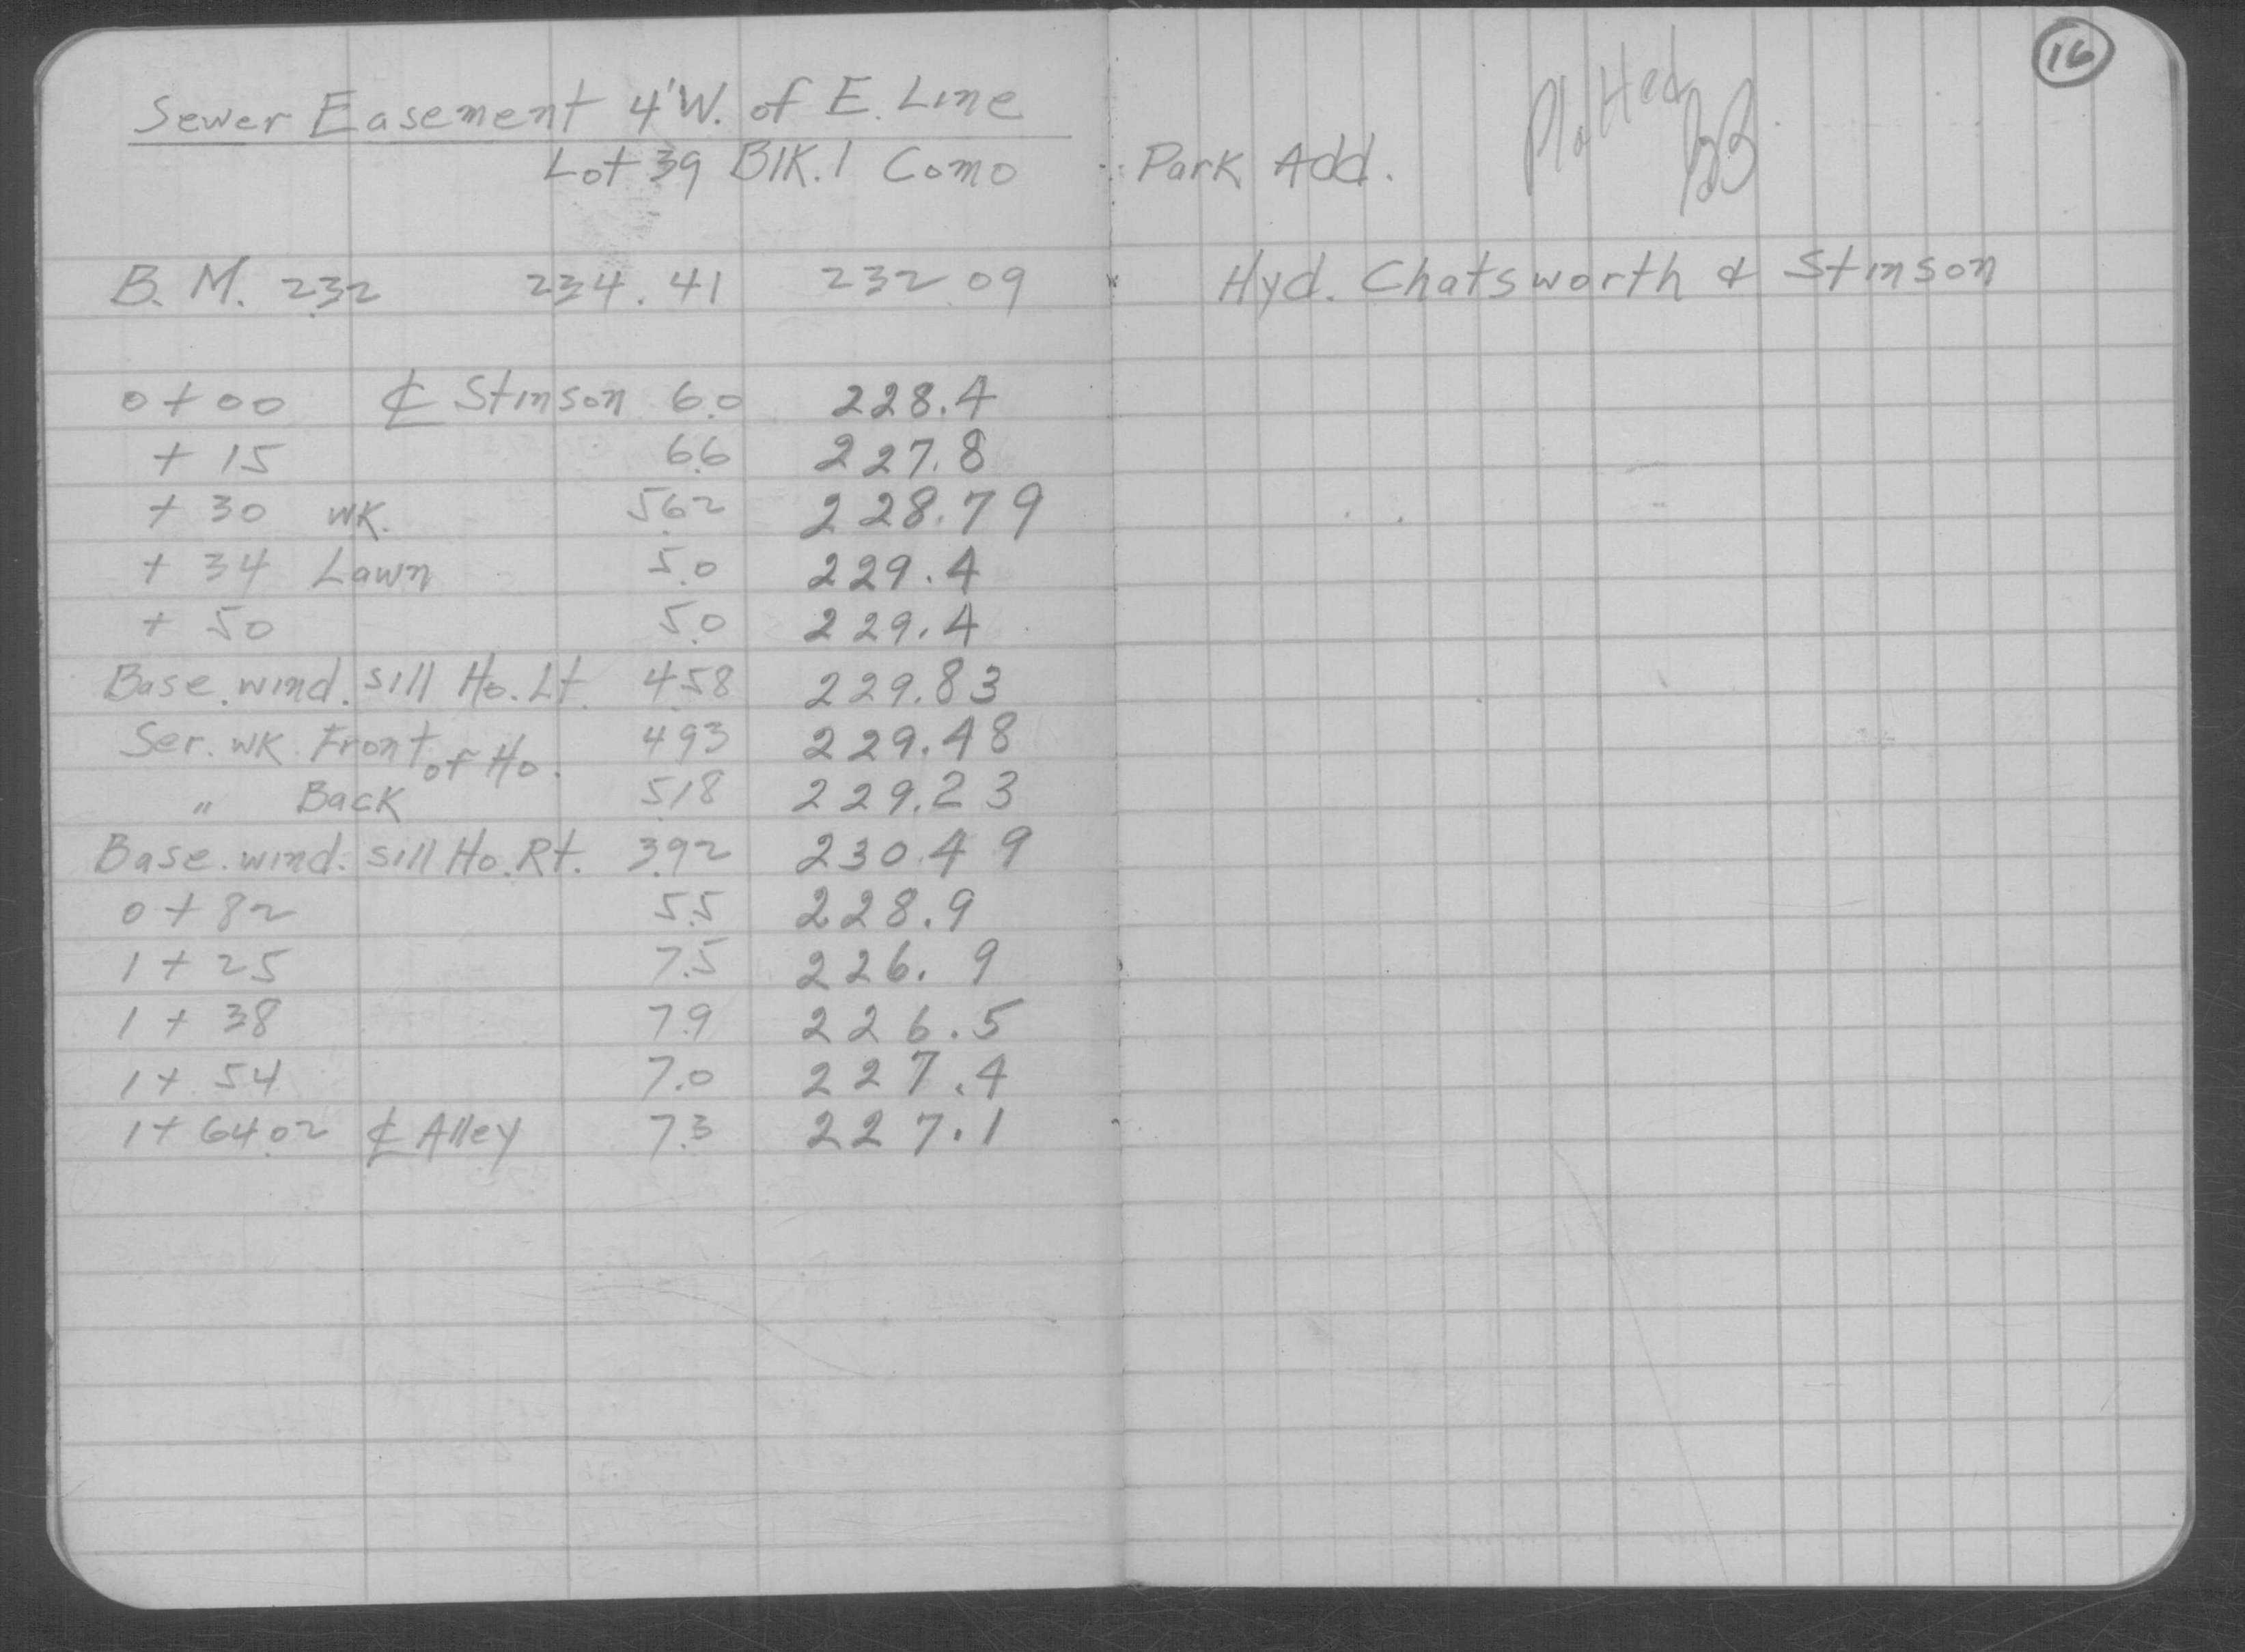 16
Sewer Easement 4'W. of E. Line
Lot 39 Blk. 1 Como Park Add.
Plotted BB
B.M. 2.32 234.41 232.09 Hyd. Chatsworth & Stinson
0+00 ℄ Stinson 6.0 228.4
+ 15 6.6 227.8
+ 30 WK. 5.62 228.79
+ 34 Lawn 5.0 229.4
+ 50 5.0 229.4
Base. wind. sill Ho. Lt. 4.58 229.83
Ser. WK. Front of Ho. 4.93 229.48
" Back 5.18 229.23
Base. wind. sill Ho. Rt. 3.92 230.49
0+82 5.5 228.9
1+25 7.5 226.9
1+38 7.9 226.5
1+54 7.0 227.4
1+64.02 ℄ Alley 7.3 227.1